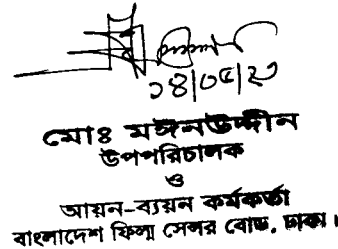 ১৪/০৫/২৩
মোঃ মঈনউদ্দীন
উপপরিচালক
ও
আয়ন-ব্যয়ন কর্মকর্তা
বাংলাদেশ ফিল্ম সেন্সর বোর্ড, ঢাকা।